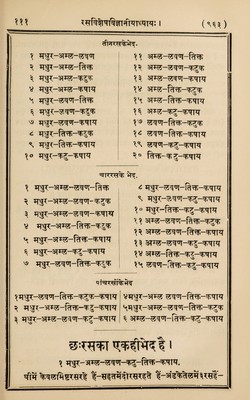 १११ रसविशेषविज्ञानीयाध्यायः। (९६३)
तीनरसकेभेद.
१ मधुर-अम्ल-लवण
२ मधुर-अम्ल-तिक्त
३ मधुर-अम्ल-कटुक
४ मधुर-अम्ल-कषाय
५ मधुर-लवण-तिक्त
६ मधुर-लवण-कटुक
७ मधुर-लवण-कषाय
८ मधुर-तिक्त-कटुक
९ मधुर-तिक्त-कषाय
१० मधुर-कटु-कषाय
११ अम्ल-लवण-तिक्त
१२ अम्ल-लवण-कटुक
१३ अम्ल-लवण-कषाय
१४ अम्ल-तिक्त-कटुक
१५ अम्ल-तिक्त-कषाय
१६ अम्ल-कटु-कषाय
१७ लवण-तिक्त-कटुक
१८ लवण-तिक्त-कषाय
१९ लवण-कटु-कषाय
२० तिक्त-कटु-कषाय
चाररसके भेद.
१ मधुर-अम्ल-लवण-तिक्त
२ मधुर-अम्ल-लवण-कटुक
३ मधुर-अम्ल-लवण-कषाय
४ मधुर-अम्ल-तिक्त-कटुक
५ मधुर-अम्ल-तिक्त-कषाय
६ मधुर-अम्ल-कटु-कषाय
७ मधुर-लवण-तिक्त-कटुक
८ मधुर-लवण-तिक्त-कषाय
९ मधुर-लवण-कटु-कषाय
१० मधुर-तिक्त-कटु-कषाय
११ अम्ल-लवण-तिक्त-कटुक
१२ अम्ल-लवण-तिक्त-कषाय
१३ अम्ल-लवण-कटु-कषाय
१४ अम्ल-तिक्त-कटु-कषाय
१५ लवण-तिक्त-कटु-कषाय
पांचरसोंकेभेद
१ मधुर-अम्ल-लवण-तिक्त-कटुक
२ मधुर-अम्ल-लवण-तिक्त-कषाय
३ मधुर-अम्ल-लवण-कटु-कषाय
४ मधुर-अम्ल-तिक्त-कटु-कषाय
५ मधुर-लवण-तिक्त-कटु-कषाय
६ अम्ल-लवण-तिक्त-कटु-कषाय
छःरसका एकहीभेद है।
१ मधुर-अम्ल-लवण-कटु-तिक्त-कषाय.